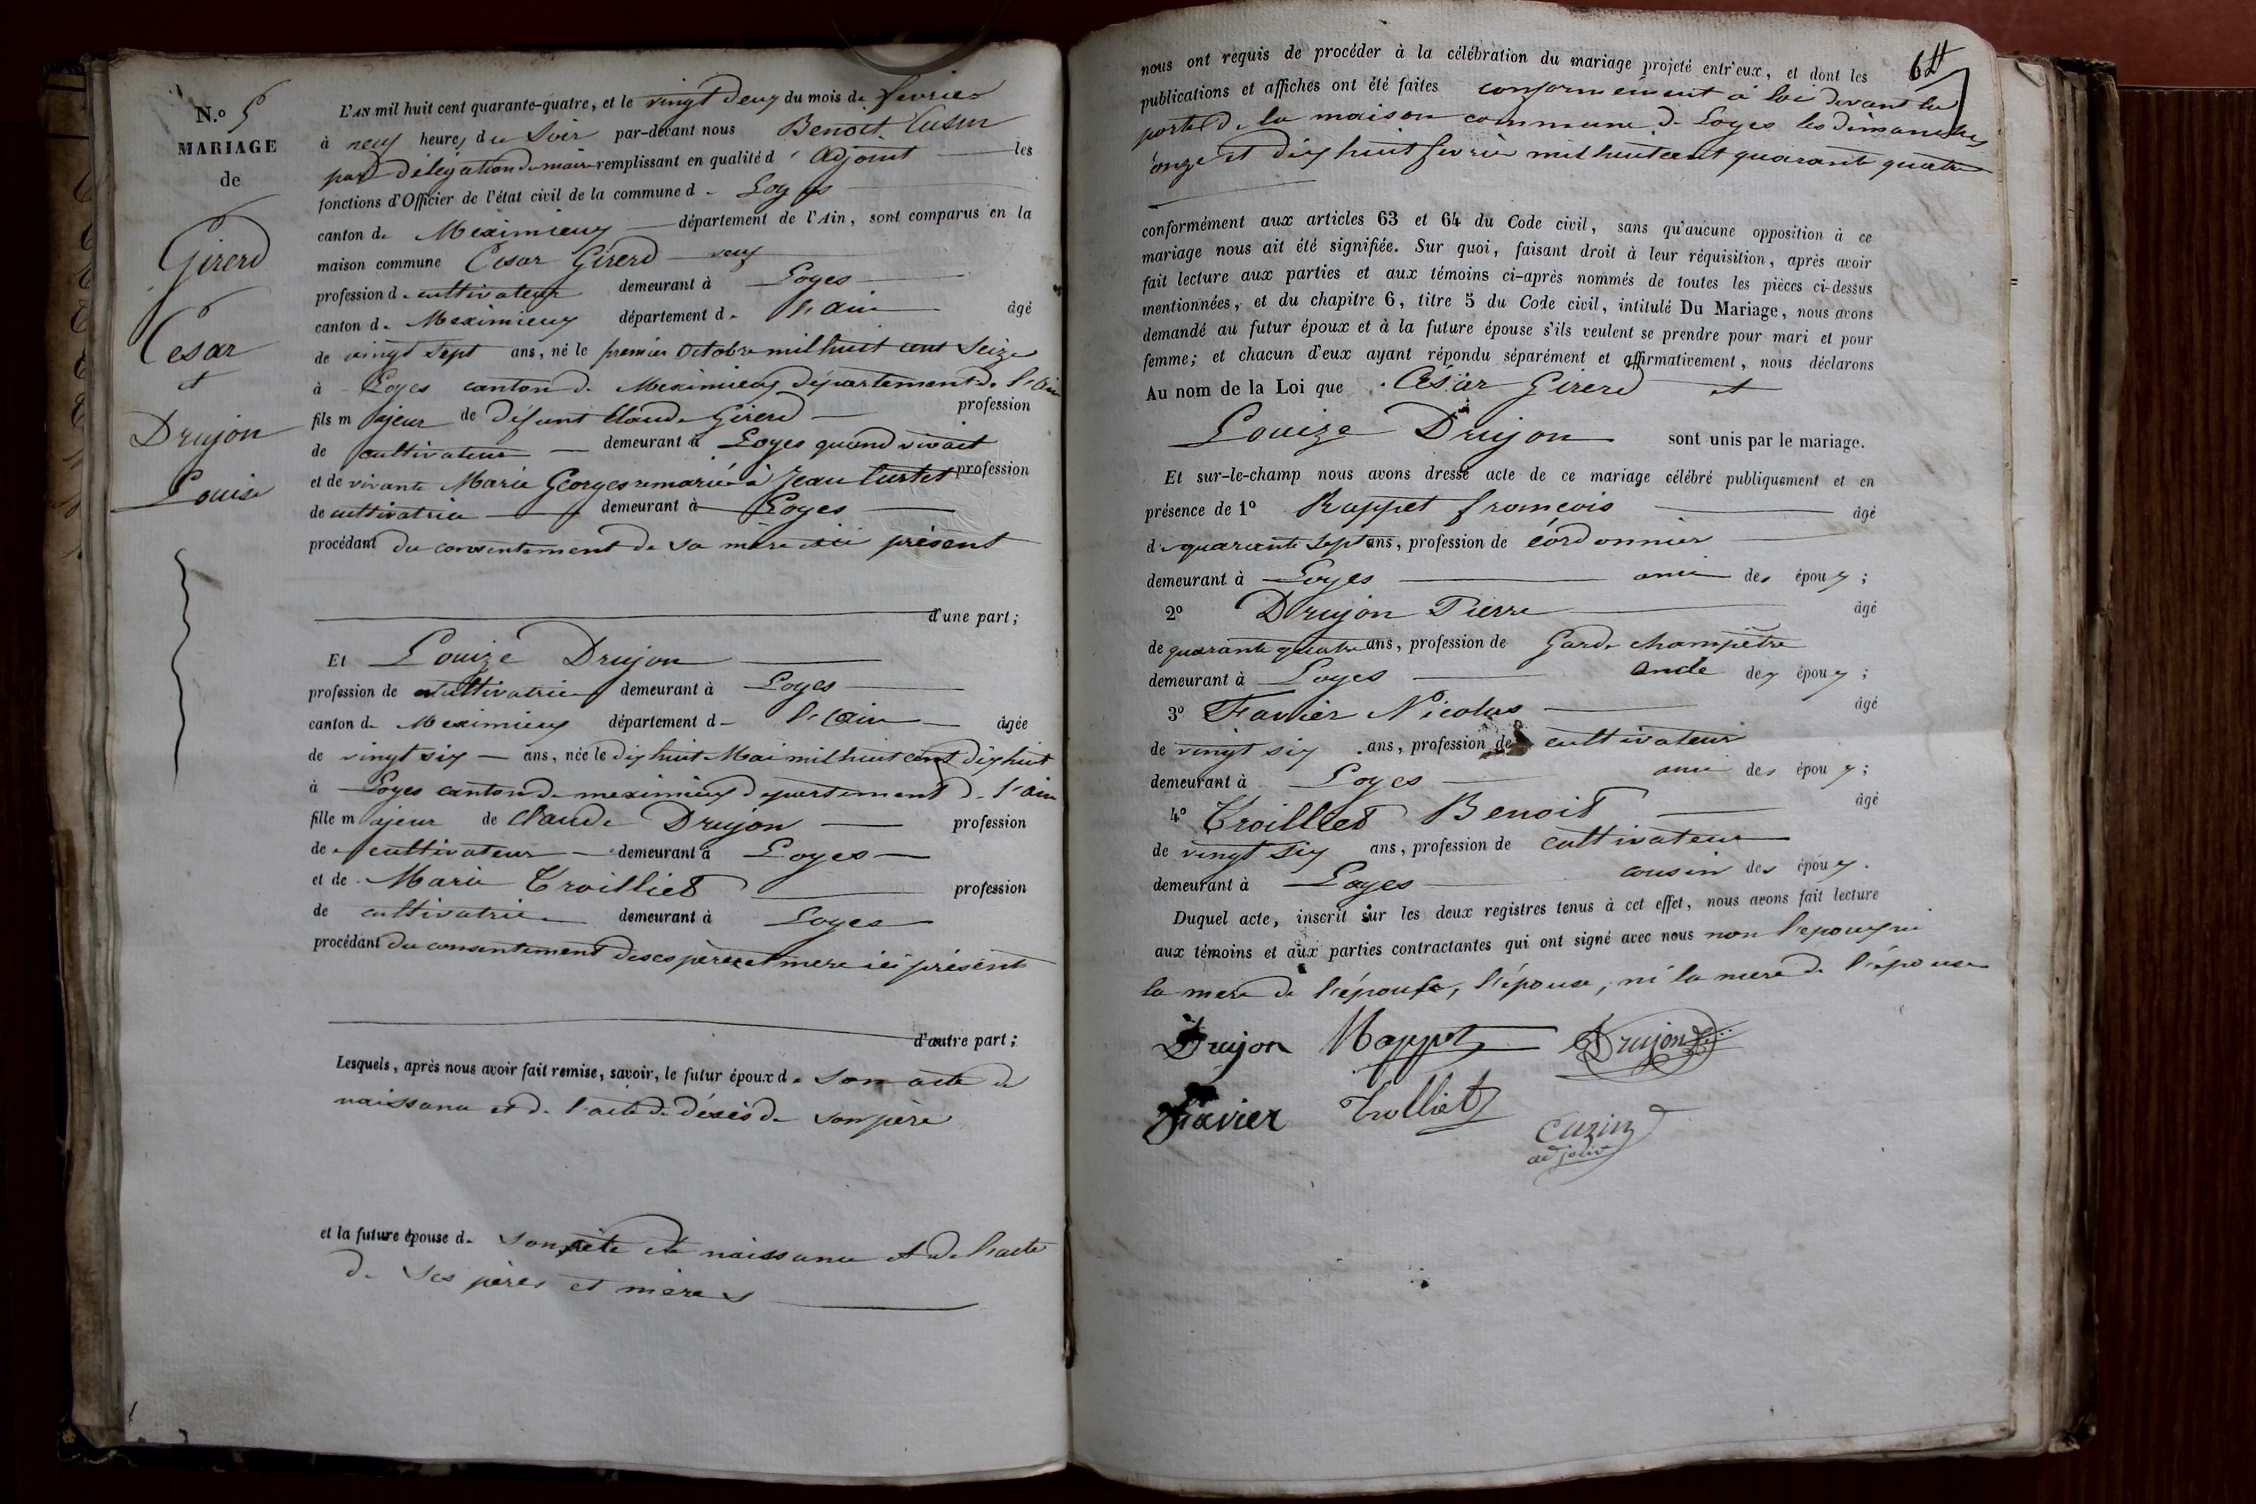 N.o 5
MARIAGE
de
Girerd
Cesar
et
Drujon
Louise
L'AN mil huit cent quarante-quatre, et le vingt deux du mois de fevrier
à neuf heures du Soir par-devant nous Benoit Cusin
par délégation de maire remplissant en qualité d'Adjoint les
fonctions d'Officier de l'état civil de la commune de Loyes
canton de Meximieux département de l'Ain, sont comparus en la
maison commune Cesar Girerd
profession de cultivateur demeurant à Loyes
canton de Meximieux département de l'ain âgé
de vingt sept ans, né le premier Octobre mil huit cent Seize
à Loyes canton de Meximieux département de l'ain
fils majeur de défunt Claude Girerd profession
de cultivateur demeurant à Loyes quand vivait
et de vivante Marie Georges remariée à Jean Curtet profession
de cultivatrice demeurant à Loyes
procédant du consentement de sa mère ici présent
d'une part;
Et Louize Drujon
profession de cultivatrice demeurant à Loyes
canton de Meximieux département de l'Ain âgée
de vingt six ans, née le dix huit Mai mil huit cent dix huit
à Loyes canton de meximieux departement de l'ain
fille majeur de Claude Drujon profession
de cultivateur demeurant à Loyes
et de Marie Troilliet profession
de cultivatrice demeurant à Loyes
procédant du consentement de ses père et mere ici présent
d'autre part;
Lesquels, après nous avoir fait remise, savoir, le futur époux de son acte de
naissance et de l'acte de désès de son père
et la future épouse de son acte de naissance et de l'acte
de ses pères et mères
64
nous ont requis de procéder à la célébration du mariage projeté entr'eux, et dont les
publications et affiches ont été faites conformement à loi devant la
porte de la maison commune de Loyes les dimanches
onze et dix huit fevrier mil huit cent quarante quatre
conformément aux articles 63 et 64 du Code civil, sans qu'aucune opposition à ce
mariage nous ait été signifiée. Sur quoi, faisant droit à leur réquisition, après avoir
fait lecture aux parties et aux témoins ci-après nommés de toutes les pièces ci-dessus
mentionnées, et du chapitre 6, titre 5 du Code civil, intitulé Du Mariage, nous avons
demandé au futur époux et à la future épouse s'ils veulent se prendre pour mari et pour
femme; et chacun d'eux ayant répondu séparément et affirmativement, nous déclarons
Au nom de la Loi que César Girerd et
Louize Drujon sont unis par le mariage.
Et sur-le-champ nous avons dressé acte de ce mariage célébré publiquement et en
présence de 1o Rappet françois âgé
de quarante sept ans, profession de cordonnier
demeurant à Loyes ami des époux;
2o Drujon Pierre âgé
de quarante quatre ans, profession de Garde champêtre
demeurant à Loyes oncle des époux;
3o Favier Nicolas âgé
de vingt six ans, profession de cultivateur
demeurant à Loyes ami des époux;
4o Troilliet Benoit âgé
de vingt six ans, profession de cultivateur
demeurant à Loyes cousin des époux.
Duquel acte, inscrit sur les deux registres tenus à cet effet, nous avons fait lecture
aux témoins et aux parties contractantes qui ont signé avec nous non l'epoux ni
la mere de l'époux, l'épouse, ni la mere de l'épouse
Drujon Rappet Drujon
Favier Trolliet
Cuzin
adjoint